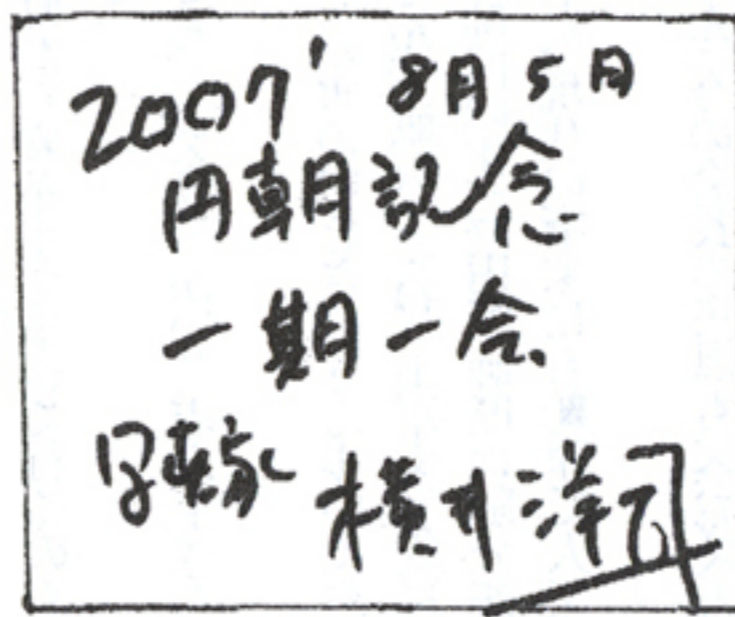 2007' 8月5日
円朝記念
一期一会
写真家 横井洋司